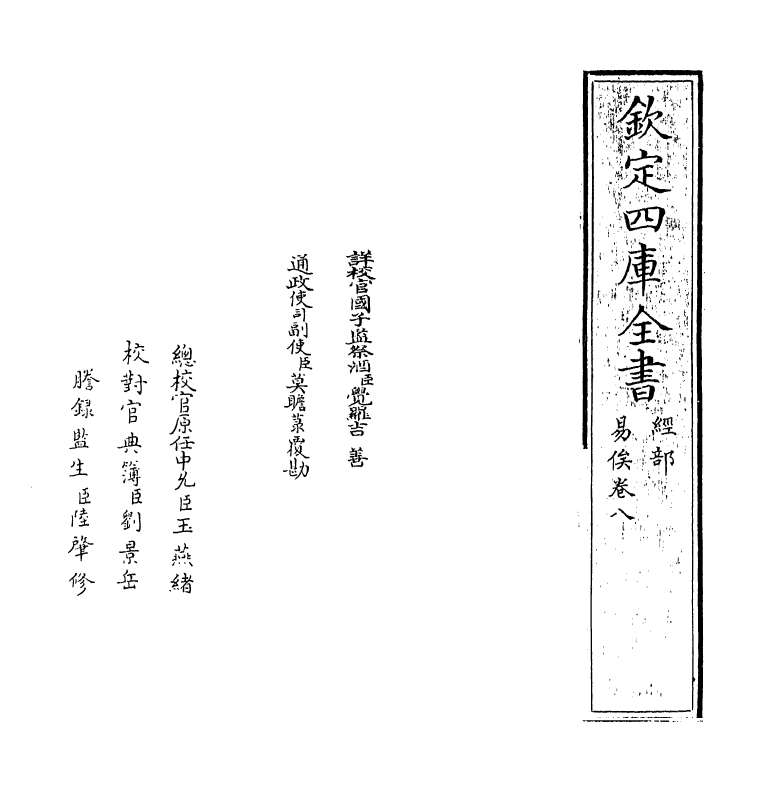 欽定四庫全書
經部
易俟卷八
詳校官國子監祭酒臣覺羅吉善
通政使司副使臣莫瞻菉覆勘
總校官原任中允臣王燕緒
校對官典簿臣劉景岳
謄錄監生臣陸肇修